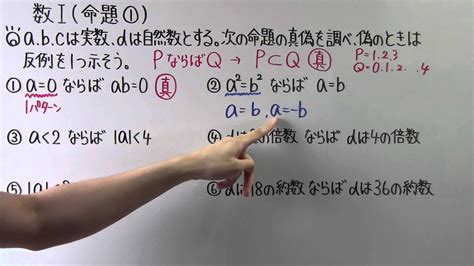 数Ⅰ(命題①)
⑥a.b.cは実数、dは自然数とする。次の命題の真偽を調べ、偽のときは
反例を1つ示そう。 PならばQ → P⊂Q 真
P=1.2.3
Q=0.1.2...4
① a=0 ならば ab=0 真
1パターン
② a²=b² ならば a=b
a=b, a=-b
③ a<2 ならば |a|<4
④ dは の倍数 ならば dは4の倍数
⑤ |a|
⑥ dは18の約数 ならば dは36の約数